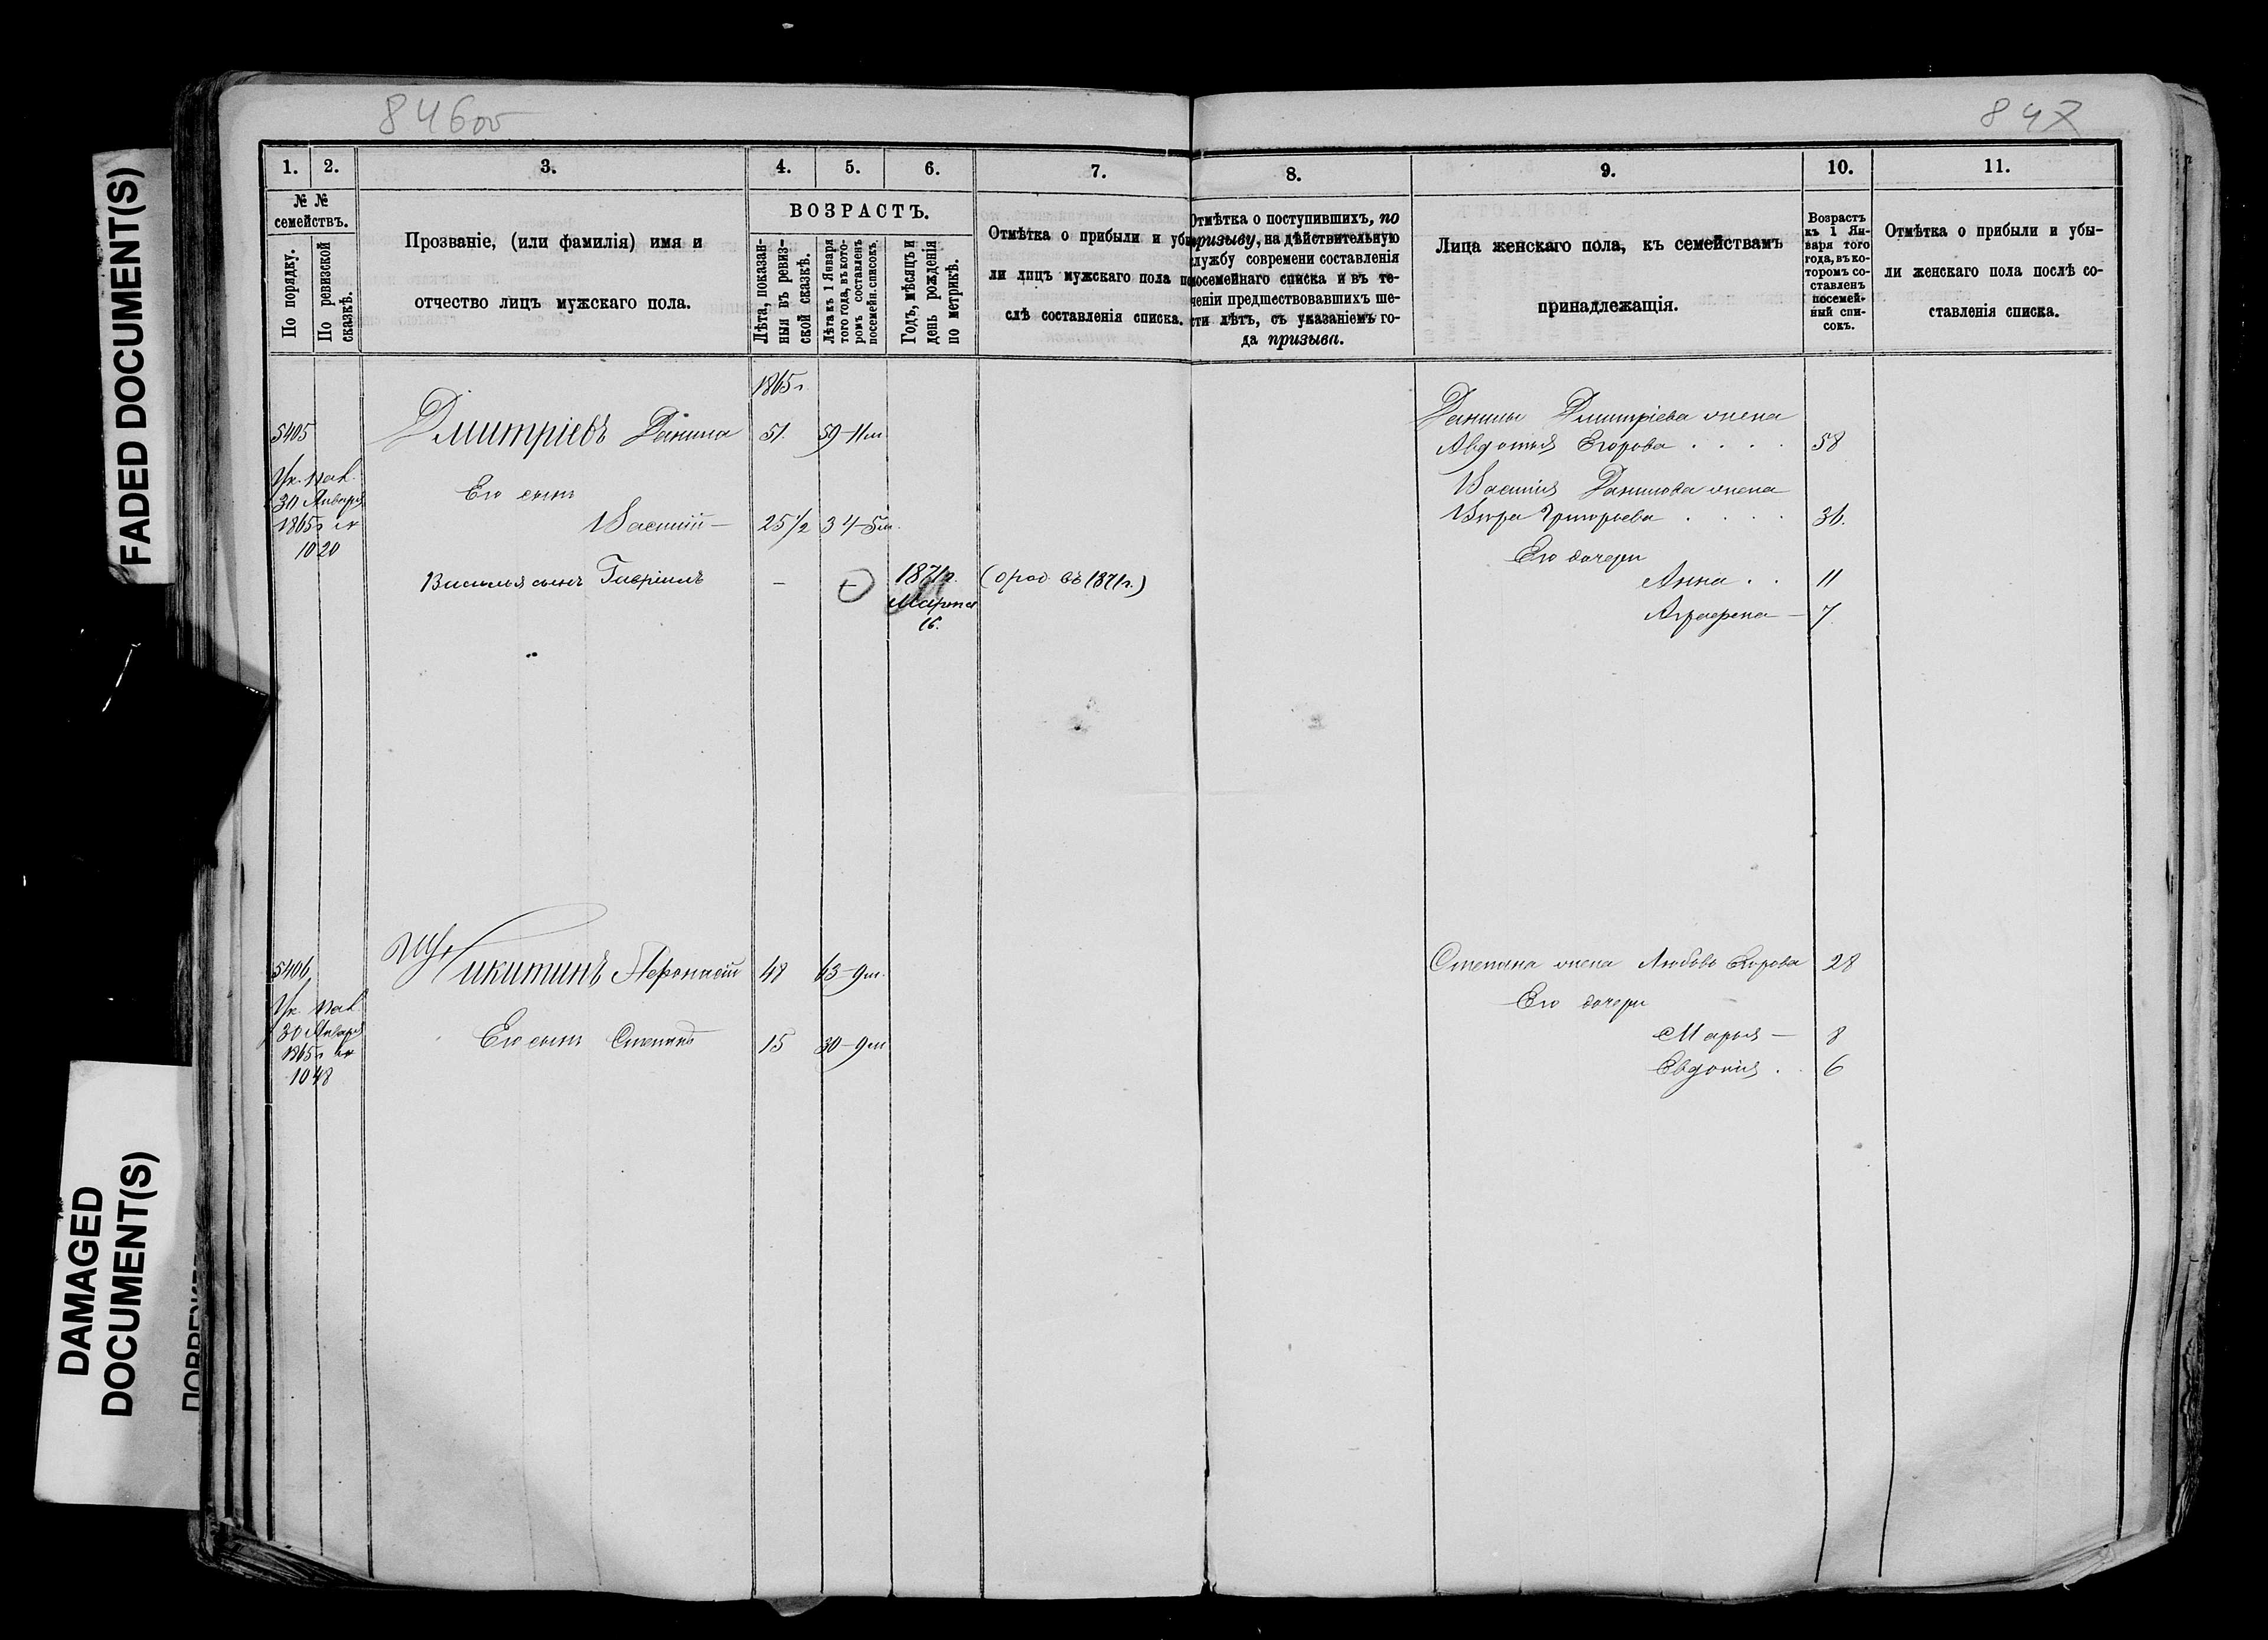 846об
847
FADED DOCUMENT(S)
DAMAGED
DOCUMENT(S)
1.
2.
3.
4.
5.
6.
7.
8.
9.
10.
11.
№ №
семействъ.
По порядку.
По ревизской
сказкѣ.
Прозваніе, (или фамилія) имя и
отчество лицъ мужскаго пола.
ВОЗРАСТЪ.
Лѣта, показан-
ныя въ ревиз-
ской сказкѣ.
Лѣта къ 1 Января
того года, въ кото-
ромъ составленъ
посемейн. списокъ.
Годъ, мѣсяцъ и
день рожденія
по метрикѣ.
Отмѣтка о прибыли и убы
ли лицъ мужскаго пола по
слѣ составленія списка.
Отмѣтка о поступившихъ, по
призыву, на дѣйствительную
службу современи составленія
посемейнаго списка и въ те-
ченіи предшествовавшихъ ше-
сти лѣтъ, съ указаніемъ го-
да призыва.
Лица женскаго пола, къ семействамъ
принадлежащія.
Возрастъ
къ 1 Ян-
варя того
года, въ ко-
торомъ со-
ставленъ
посемей-
ный спи-
сокъ.
Отмѣтка о прибыли и убы-
ли женскаго пола послѣ со-
ставленія списка.
1865 г.
5405 Дмитріевъ Данила 51. 59-11м Данилы Дмитріева жена
Авдотья Егорова . . . . 58
30 Января Его сынъ Василія Данилова жена
1865 г № Василій — 25½ 34-5м. Вѣра Григорьева . . . . 36.
1020
Его дочери
Васильа сынъ Гавріилъ — 1871г. Марта 16. (брод. въ 1871г.) Анна . . 11
Аграфена — 7
5406 Никитинъ Афонасій 48 63-9м. Степана жена Любовь Егорова 28
Его дочери
30 Января Его сынъ Степанъ 15 30-9м Марья — 8
1865 г №
1048 Евдокія . . 6